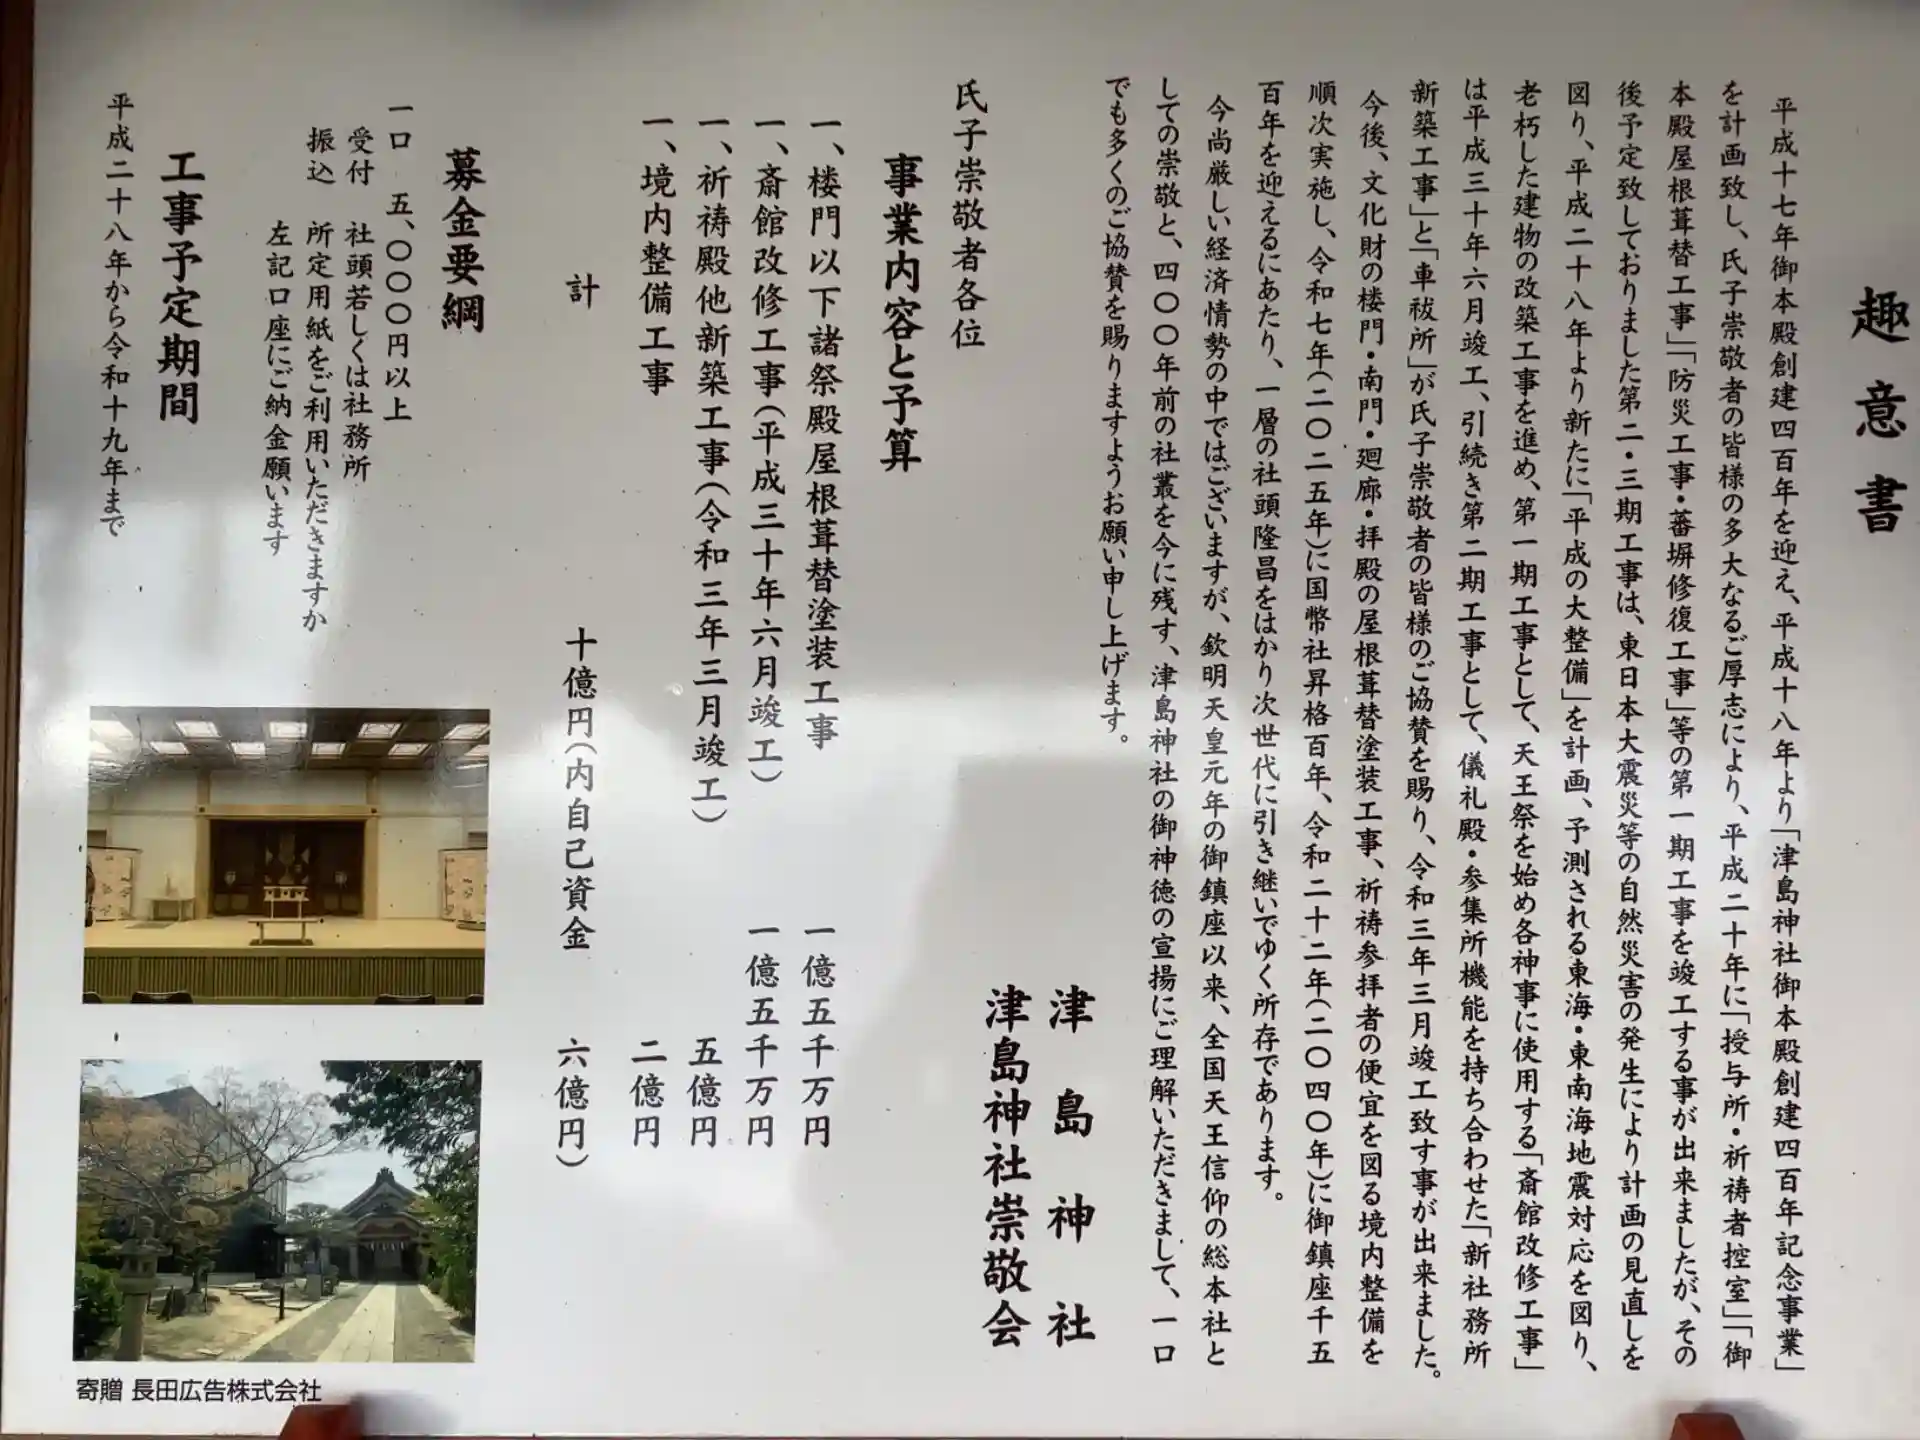 趣意書
平成十七年御本殿創建四百年を迎え、平成十八年より「津島神社御本殿創建四百年記念事業」
を計画致し、氏子崇敬者の皆様の多大なるご厚志により、平成二十年に「授与所・祈祷者控室」「御
本殿屋根葺替工事」「防災工事・蕃塀修復工事」等の第一期工事を竣工する事が出来ましたが、その
後予定致しておりました第二・三期工事は、東日本大震災等の自然災害の発生により計画の見直しを
図り、平成二十八年より新たに「平成の大整備」を計画、予測される東海・東南海地震対応を図り、
老朽した建物の改築工事を進め、第一期工事として、天王祭を始め各神事に使用する「斎館改修工事」
は平成三十年六月竣工、引続き第二期工事として、儀礼殿・参集所機能を持ち合わせた「新社務所
新築工事」と「車祓所」が氏子崇敬者の皆様のご協賛を賜り、令和三年三月竣工致す事が出来ました。
今後、文化財の楼門・南門・廻廊・拝殿の屋根葺替塗装工事、祈祷参拝者の便宜を図る境内整備を
順次実施し、令和七年(二〇二五年)に国幣社昇格百年、令和二十二年(二〇四〇年)に御鎮座千五
百年を迎えるにあたり、一層の社頭隆昌をはかり次世代に引き継いでゆく所存であります。
今尚厳しい経済情勢の中ではございますが、欽明天皇元年の御鎮座以来、全国天王信仰の総本社と
しての崇敬と、四〇〇年前の社叢を今に残す、津島神社の御神徳の宣揚にご理解いただきまして、一口
でも多くのご協賛を賜りますようお願い申し上げます。
津島神社
津島神社崇敬会
氏子崇敬者各位
事業内容と予算
一、楼門以下諸祭殿屋根葺替塗装工事 一億五千万円
一、斎館改修工事(平成三十年六月竣工) 一億五千万円
一、祈祷殿他新築工事(令和三年三月竣工) 五億円
一、境内整備工事 二億円
計 十億円(内自己資金 六億円)
募金要綱
一口 五、〇〇〇円以上
受付 社頭若しくは社務所
振込 所定用紙をご利用いただきますか
左記口座にご納金願います
工事予定期間
平成二十八年から令和十九年まで
寄贈 長田広告株式会社